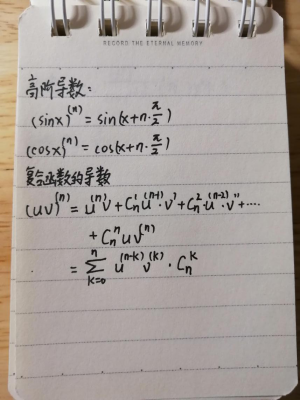 RECORD THE ETERNAL MEMORY
高阶导数:
(sinx)⁽ⁿ⁾ = sin(x+n·π/2)
(cosx)⁽ⁿ⁾ = cos(x+n·π/2)
复合函数的导数
(uv)⁽ⁿ⁾ = u⁽ⁿ⁾v + Cₙ¹u⁽ⁿ⁻¹⁾·v' + Cₙ²·u⁽ⁿ⁻²⁾·v'' + ....
+ Cₙⁿuv⁽ⁿ⁾
= Σₖ₌₀ⁿ u⁽ⁿ⁻ᵏ⁾v⁽ᵏ⁾·Cₙᵏ